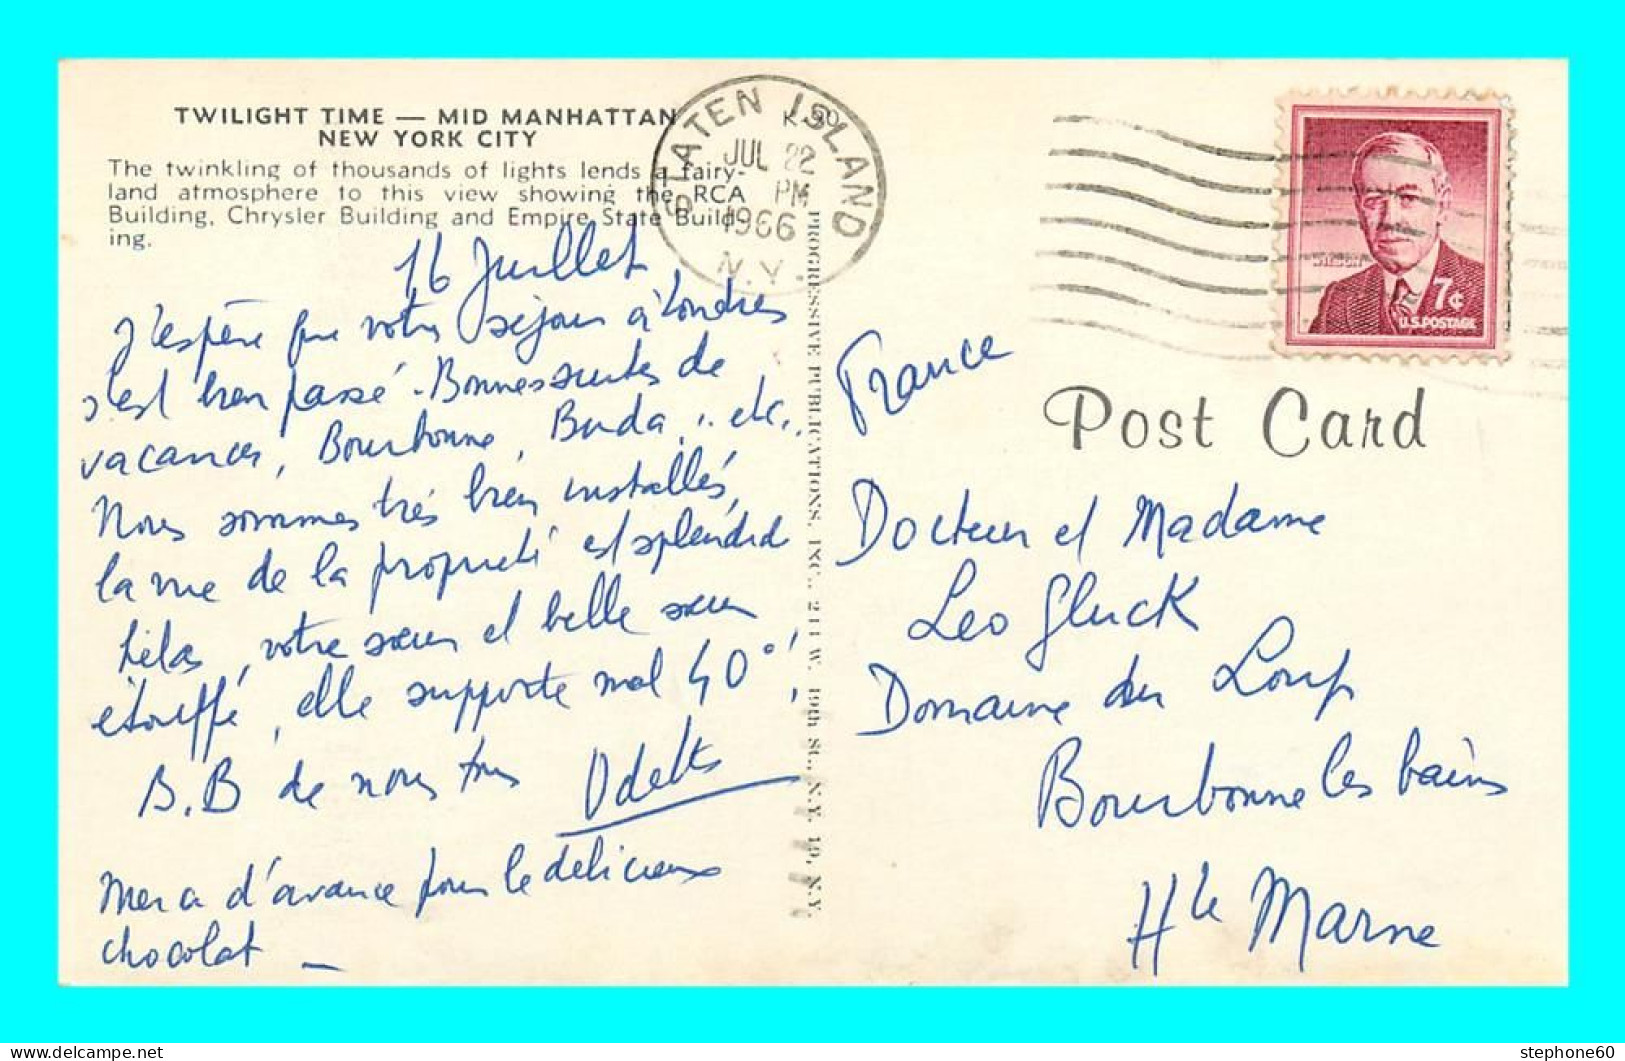 TWILIGHT TIME — MID MANHATTAN
NEW YORK CITY
K-90
The twinkling of thousands of lights lends a fairy-
land atmosphere to this view showing the RCA
Building, Chrysler Building and Empire State Build-
ing.
STATEN ISLAND
JUL 22
PM
1966
N.Y.
WILSON
7¢
U.S.POSTAGE
16 Juillet
J'espère que votre séjour à Londres
s'est bien passé. Bonnes suites de
vacances, Bourbonne, Buda... etc..
Nous sommes très bien installés,
la vue de la propriété est splendide
hélas, votre sœur et belle sœur
étouffé, elle supporte mal 40°!
B.B de nous tous Odette
Merci d'avance pour le délicieux
chocolat _
PROGRESSIVE PUBLICATIONS, INC., 244 W. 49th St., N.Y. 19, N.Y.
Post Card
France
Docteur et Madame
Leo Gluck
Domaine du Loup
Bourbonne les bains
Hte Marne
stephone60